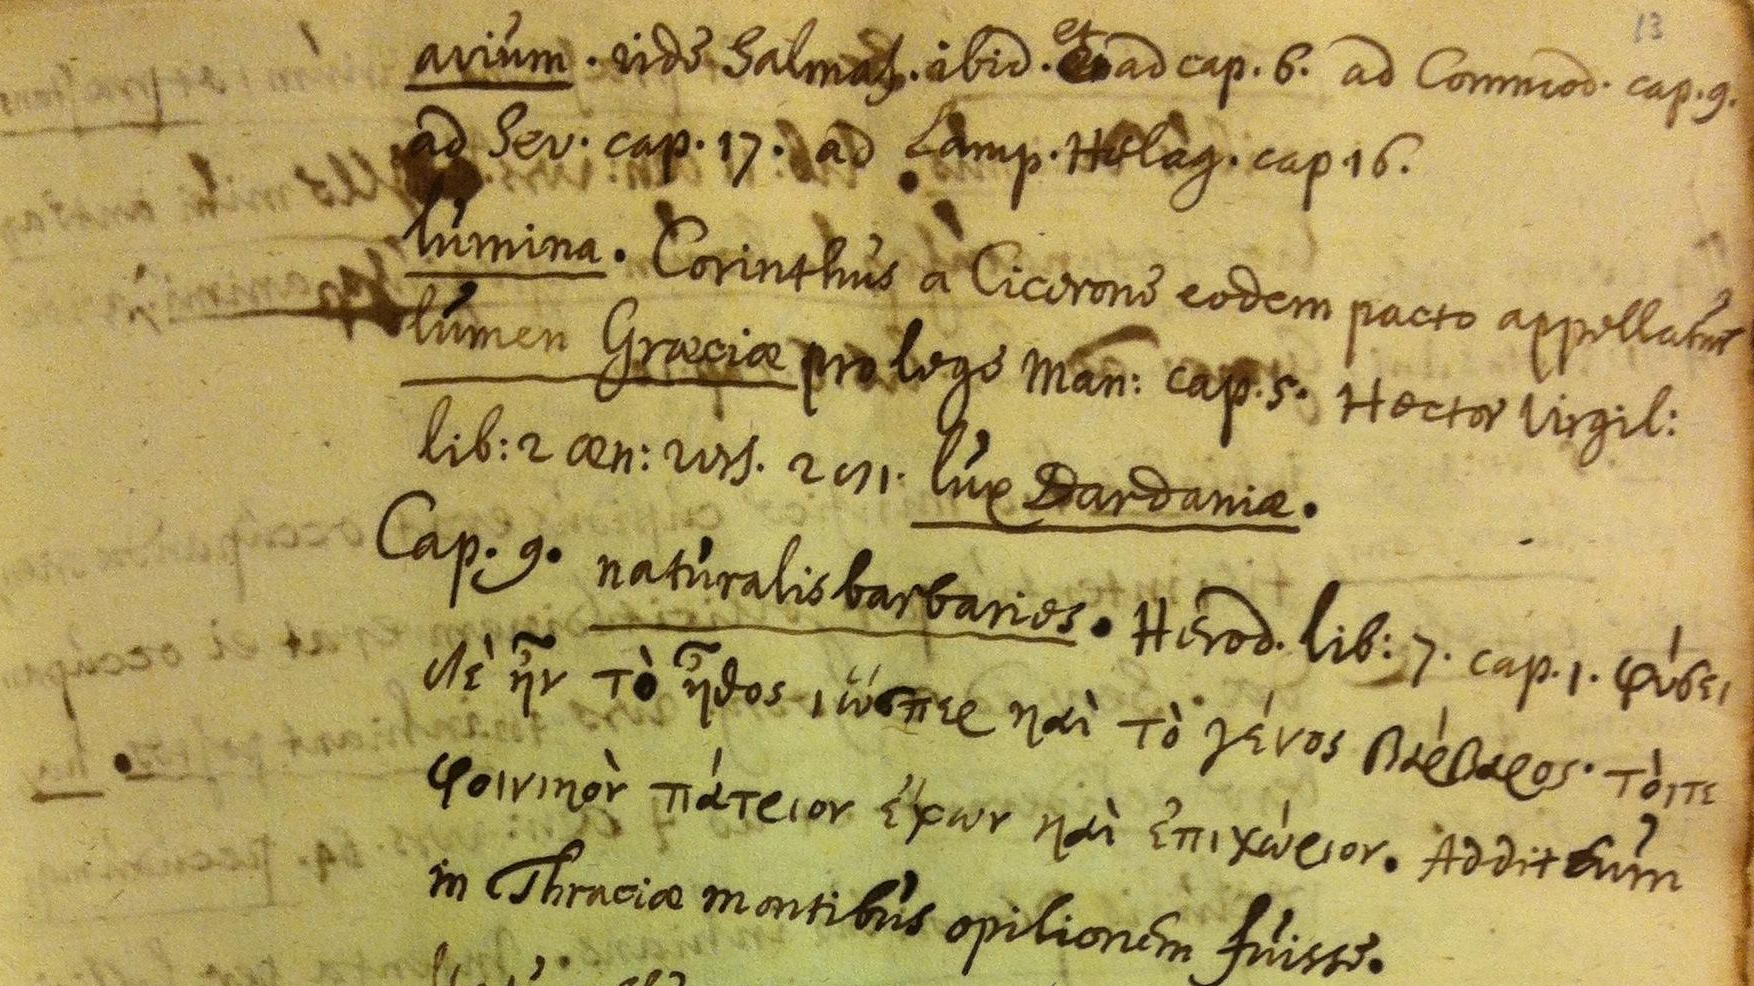 13
avium. vide Salmas. ibid. et ad cap. 6. ad Commod. cap. 9.
ad Sev. cap. 17. ad Lamp. Helag. cap 16.
lumina. Corinthus a Cicerone eodem pacto appellatur
lumen Græciæ pro lege Man: cap. 5. Hector Virgil:
lib: 2 æn: vers. 281. lux Dardaniæ.
Cap. 9. naturalis barbaries. Herod. lib: 7. cap. 1. φύσει
δὲ ἦν τὸ ἦθος, ὥσπερ καὶ τὸ γένος βάρβαρος. τότε
φοινικὸν πάτριον ἔφων καὶ ἐπιχώριον. Addit eum
in Thraciæ montibus opilionem fuisse.